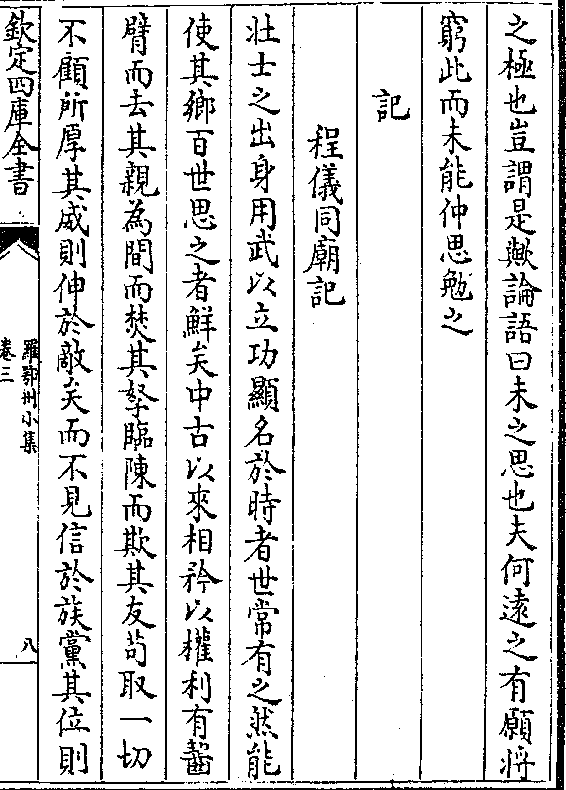 之極也豈謂是歟論語曰未之思也夫何遠之有願將
窮此而未能仲思勉之
記
程儀同廟記
壯士之出身用武以立功顯名於時者世常有之然能
使其鄉百世思之者鮮矣中古以來相矜以權利有齧
臂而去其親為間而焚其孥臨陳而欺其友茍取一切
不顧所厚其威則伸於敵矣而不見信於族黨其位則
欽定四庫全書
羅鄂州小集
卷三
八